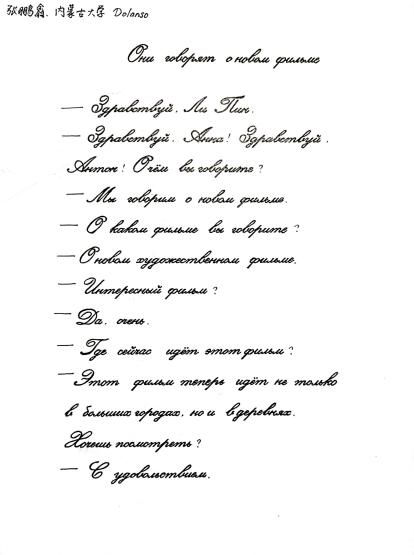 张鹏翕. 内蒙古大学 Dolanso
Они говорят о новом фильме
— Здравствуй, Ли Пин.
— Здравствуй, Анна! Здравствуй,
Антон! О чём вы говорите?
— Мы говорим о новом фильме.
— О каком фильме вы говорите?
— О новом художественном фильме.
— Интересный фильм?
— Да, очень.
— Где сейчас идёт этот фильм?
— Этот фильм теперь идёт не только
в больших городах, но и в деревнях.
Хочешь посмотреть?
— С удовольствием.